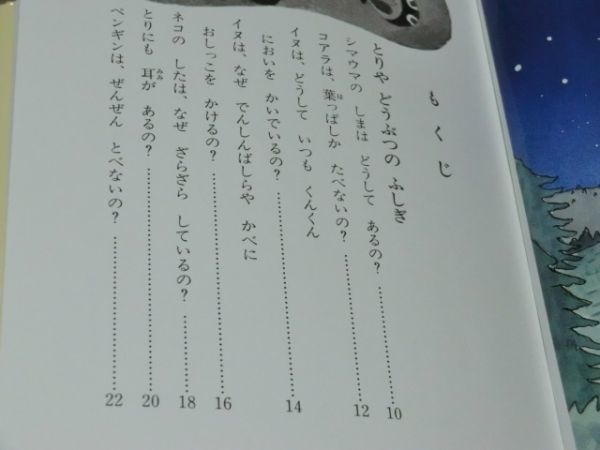 もくじ
とりや どうぶつの ふしぎ
シマウマの しまは どうして あるの? 10
コアラは、葉っぱしか たべないの? 12
は
イヌは、どうして いつも くんくん
においを かいでいるの? 14
イヌは、なぜ でんしんばしらや かべに
おしっこを かけるの? 16
ネコの したは、なぜ ざらざら しているの? 18
とりにも 耳が あるの? 20
みみ
ペンギンは、ぜんぜん とべないの? 22